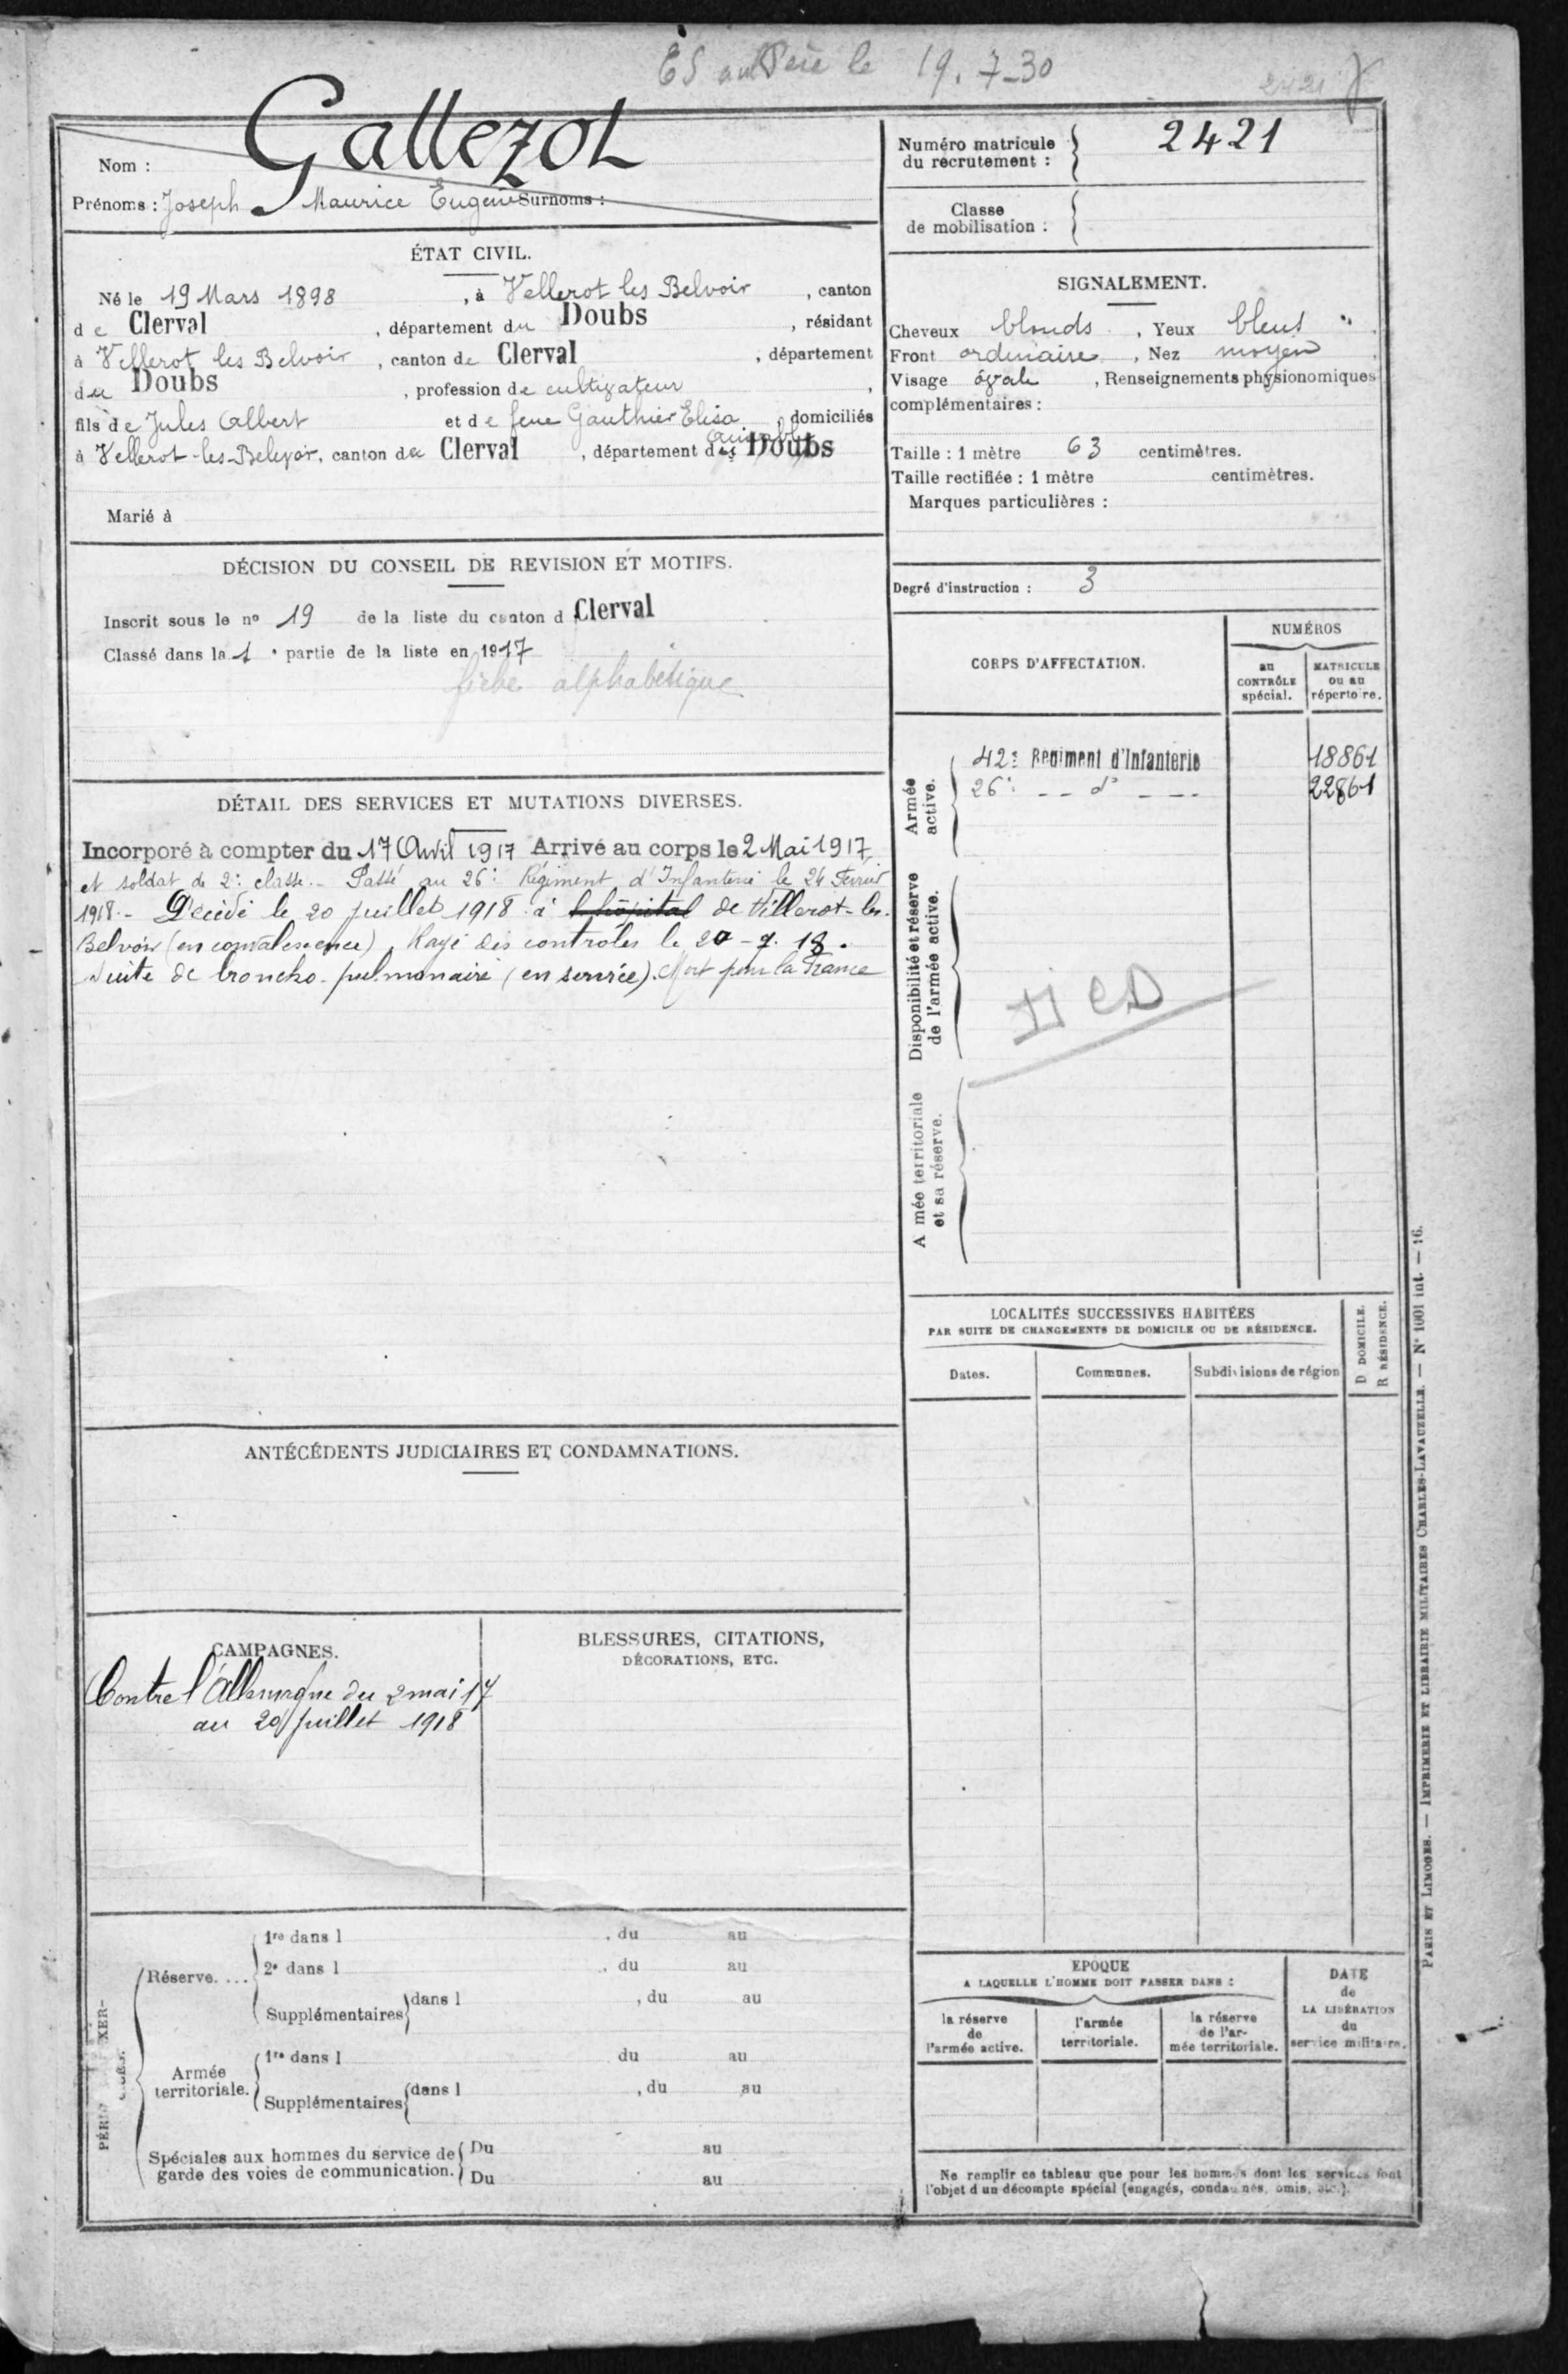 ES au Père le 19.7-30
2421
Nom : Gallezot
Prénoms : Joseph Maurice Eugène Surnoms :
ÉTAT CIVIL.
Né le 19 Mars 1898, à Vellerot les Belvoir, canton
de Clerval, département du Doubs, résidant
à Vellerot les Belvoir, canton de Clerval, département
du Doubs, profession de cultivateur,
fils de Jules Albert et de feue Gauthier Elisa domiciliés
à Vellerot-les-Belvoir, canton de Clerval, département du Doubs
Marié à
DÉCISION DU CONSEIL DE REVISION ET MOTIFS.
Inscrit sous le nº 19 de la liste du canton d Clerval
Classé dans la 1 e partie de la liste en 1917
fiche alphabétique
DÉTAIL DES SERVICES ET MUTATIONS DIVERSES.
Incorporé à compter du 17 Avril 1917 Arrivé au corps le 2 Mai 1917
et soldat de 2e classe.- Passé au 26e Régiment d'Infanterie le 24 Février
1918.- Décédé le 20 juillet 1918 à l'hôpital de Villerot-les-
Belvoir (en convalescence), Rayé des contrôles le 20-7.18.
Suite de broncho-pulmonaire (en service). Mort pour la France
ANTÉCÉDENTS JUDICIAIRES ET CONDAMNATIONS.
CAMPAGNES.
Contre l'Allemagne du 2 mai 17
au 20 juillet 1918
BLESSURES, CITATIONS,
DÉCORATIONS, ETC.
Réserve....
1re dans l , du au
2e dans l , du au
Supplémentaires dans l , du au
Armée
territoriale.
1re dans l du au
Supplémentaires dans l , du au
Spéciales aux hommes du service de
garde des voies de communication.
Du au
Du au
Numéro matricule
du recrutement : 2421
Classe
de mobilisation :
SIGNALEMENT.
Cheveux blonds, Yeux bleus
Front ordinaire, Nez moyen
Visage ovale, Renseignements physionomiques
complémentaires :
Taille : 1 mètre 63 centimètres.
Taille rectifiée : 1 mètre centimètres.
Marques particulières :
Degré d'instruction : 3
CORPS D'AFFECTATION.
NUMÉROS
au
CONTRÔLE
spécial.
MATRICULE
ou au
répertoire.
Armée
active.
42e Régiment d'Infanterie 18861
26e -- do --- 22861
Disponibilité et réserve
de l'armée active.
A mée territoriale
et sa réserve.
LOCALITÉS SUCCESSIVES HABITÉES
PAR SUITE DE CHANGEMENTS DE DOMICILE OU DE RÉSIDENCE.
D DOMICILE.
R RÉSIDENCE.
Dates.
Communes.
Subdivisions de région
EPOQUE
A LAQUELLE L'HOMME DOIT PASSER DANS :
la réserve
de
l'armée active.
l'armée
territoriale.
la réserve
de l'ar-
mée territoriale.
DATE
de
LA LIBÉRATION
du
service militaire.
Ne remplir ce tableau que pour les hommes dont les services font
l'objet d un décompte spécial (engagés, condamnés, omis, etc.).
PARIS ET LIMOGES. — IMPRIMERIE ET LIBRAIRIE MILITAIRES CHARLES-LAVAUZELLE. — Nº 1001 int. — 16.